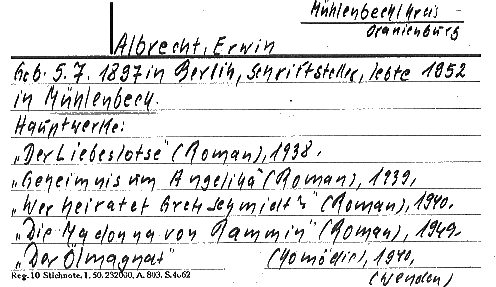 Mühlenbeck/Kreis
Oranienburg
Albrecht, Erwin
Geb. 5.7.1897 in Berlin, Schriftsteller, lebte 1952
in Mühlenbeck.
Hauptwerke:
„Der Liebeslotse" (Roman), 1938.
„Geheimnis um Angelika" (Roman), 1939.
„Wer heiratet Grete Schmidt?" (Roman), 1940.
„Die Madonna von Rammin" (Roman), 1949.
„Der Ölmagnat" (Komödie), 1940.
(wenden)
Reg. 10 Stichnote. 1. 50. 232000. A. 803. S. 4062